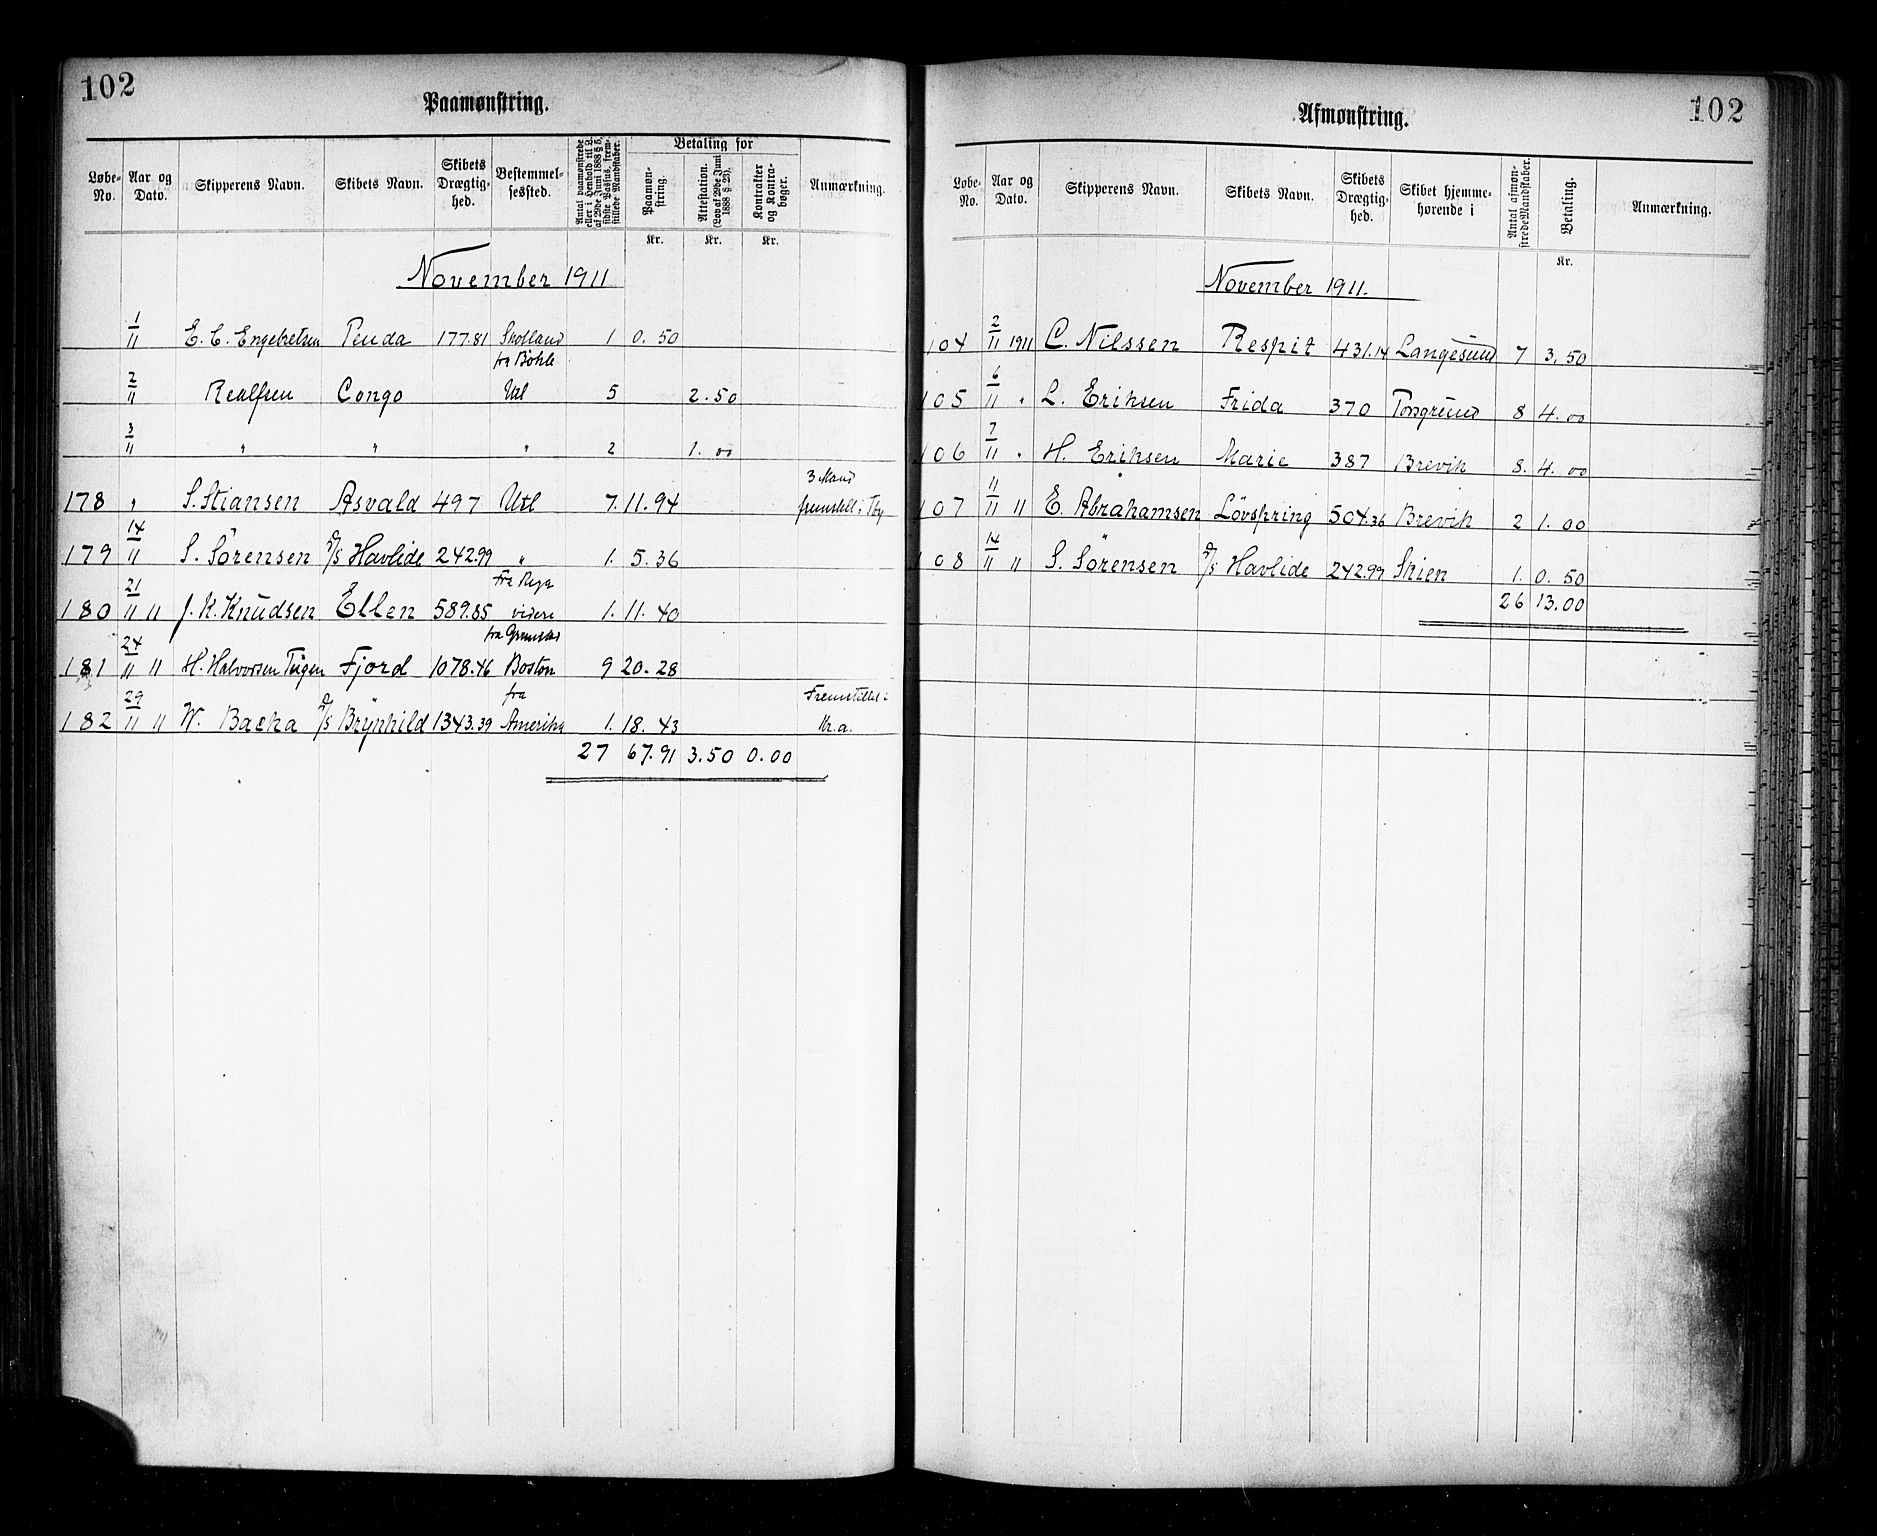 102
Paamønstring.
Løbe-No. Aar og Dato. Skipperens Navn. Skibets Navn. Skibets Drægtighed. Bestemmelsessted. Antal paamønstrede eller i Henhold til L. af 29de Juni 1888 § 5, sidste Passus, fremstillede Mandskaber. Betaling for Paamønstring. Attestation. (Lov af 29de Juni 1888 § 25). Kontrakter og Kontrabøger. Anmærkning.
Kr. Kr. Kr.
November 1911
1/11 E. C. Engebretsen Penda 177.81 Skotland 1 0.50
fra Böhle
2/11 Realfsen Congo Utl 5 2.50
3/11 " " " 2 1.00
3 Mand
178 " S. Stiansen Asvald 497 Utl 7. 11.94 fremstill i
179 14/11 S. Sörensen D/S Havlide 242.99 " 1. 5.36
Fra
180 21/11 " J. K. Knudsen Ellen 589.85 videre 1. 11.40
fra Grimstad
181 24/11 " H. Halvorsen Fjord 1078.46 Boston 9 20.28
fra Fremstillet i
182 29/11 " W. Backa D/S Brynhild 1343.39 Amerika 1. 18.43 Kr.a.
27 67.91 3.50 0.00
102
Afmønstring.
Løbe-No. Aar og Dato. Skipperens Navn. Skibets Navn. Skibets Drægtighed. Skibet hjemmehørende i Antal afmønstrede Mandskaber. Betaling. Anmærkning.
Kr.
November 1911.
104 2/11 1911 C. Nilssen Respit 431.14 Langesund 7 3.50
105 6/11 " L. Eriksen Frida 370 Porsgrund 8 4.00
106 7/11 " H. Eriksen Marie 387 Brevik 8. 4.00
107 11/11 " E. Abrahamsen Lövspring 504.36 Brevik 2 1.00
108 14/11 " S. Sörensen D/S Havlide 242.99 Skien 1. 0.50
26 13.00